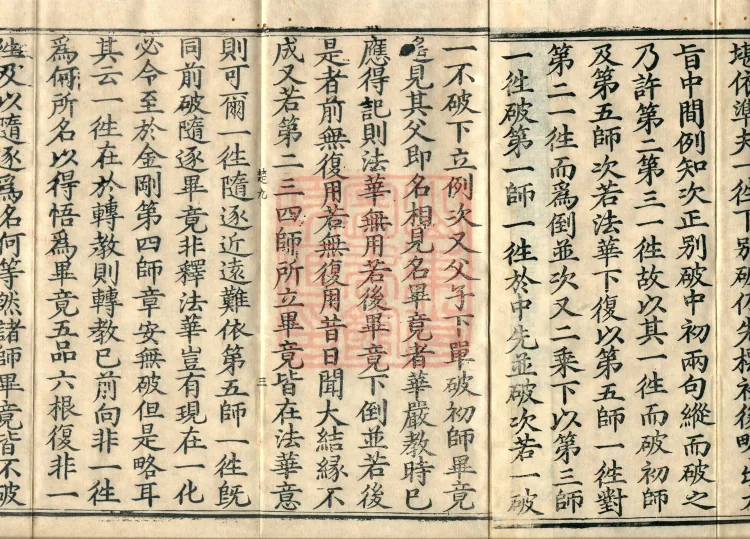 堪依準夫一徃下別破
旨中間例知次正别破中初兩句縱而破之
乃許第二第三一徃故以其一徃而破初師
及第五師次若法華下復以第五師一徃對
第二一徃而爲倒並次又二乘下以第三師
一徃破第一師一徃於中先並破次若一破
一不破下立例次又父子下單破初師畢竟
見其父即名相見名畢竟者華嚴教時已
應得記則法華無用若後畢竟下倒並若後
是者前無復用若無復用昔日聞大結緣不
成又若第二三四師所立畢竟皆在法華意
楚九 三
則可爾一徃隨逐近遠難依第五師一徃旣
同前破隨逐畢竟非釋法華豈有現在一化
必令至於金剛第四師章安無破但是略耳
其云一徃在於轉教則轉教已前向非一徃
爲何所名以得悟爲畢竟五品六根復非一
徃及以隨逐爲名何等然諸師畢竟皆不破